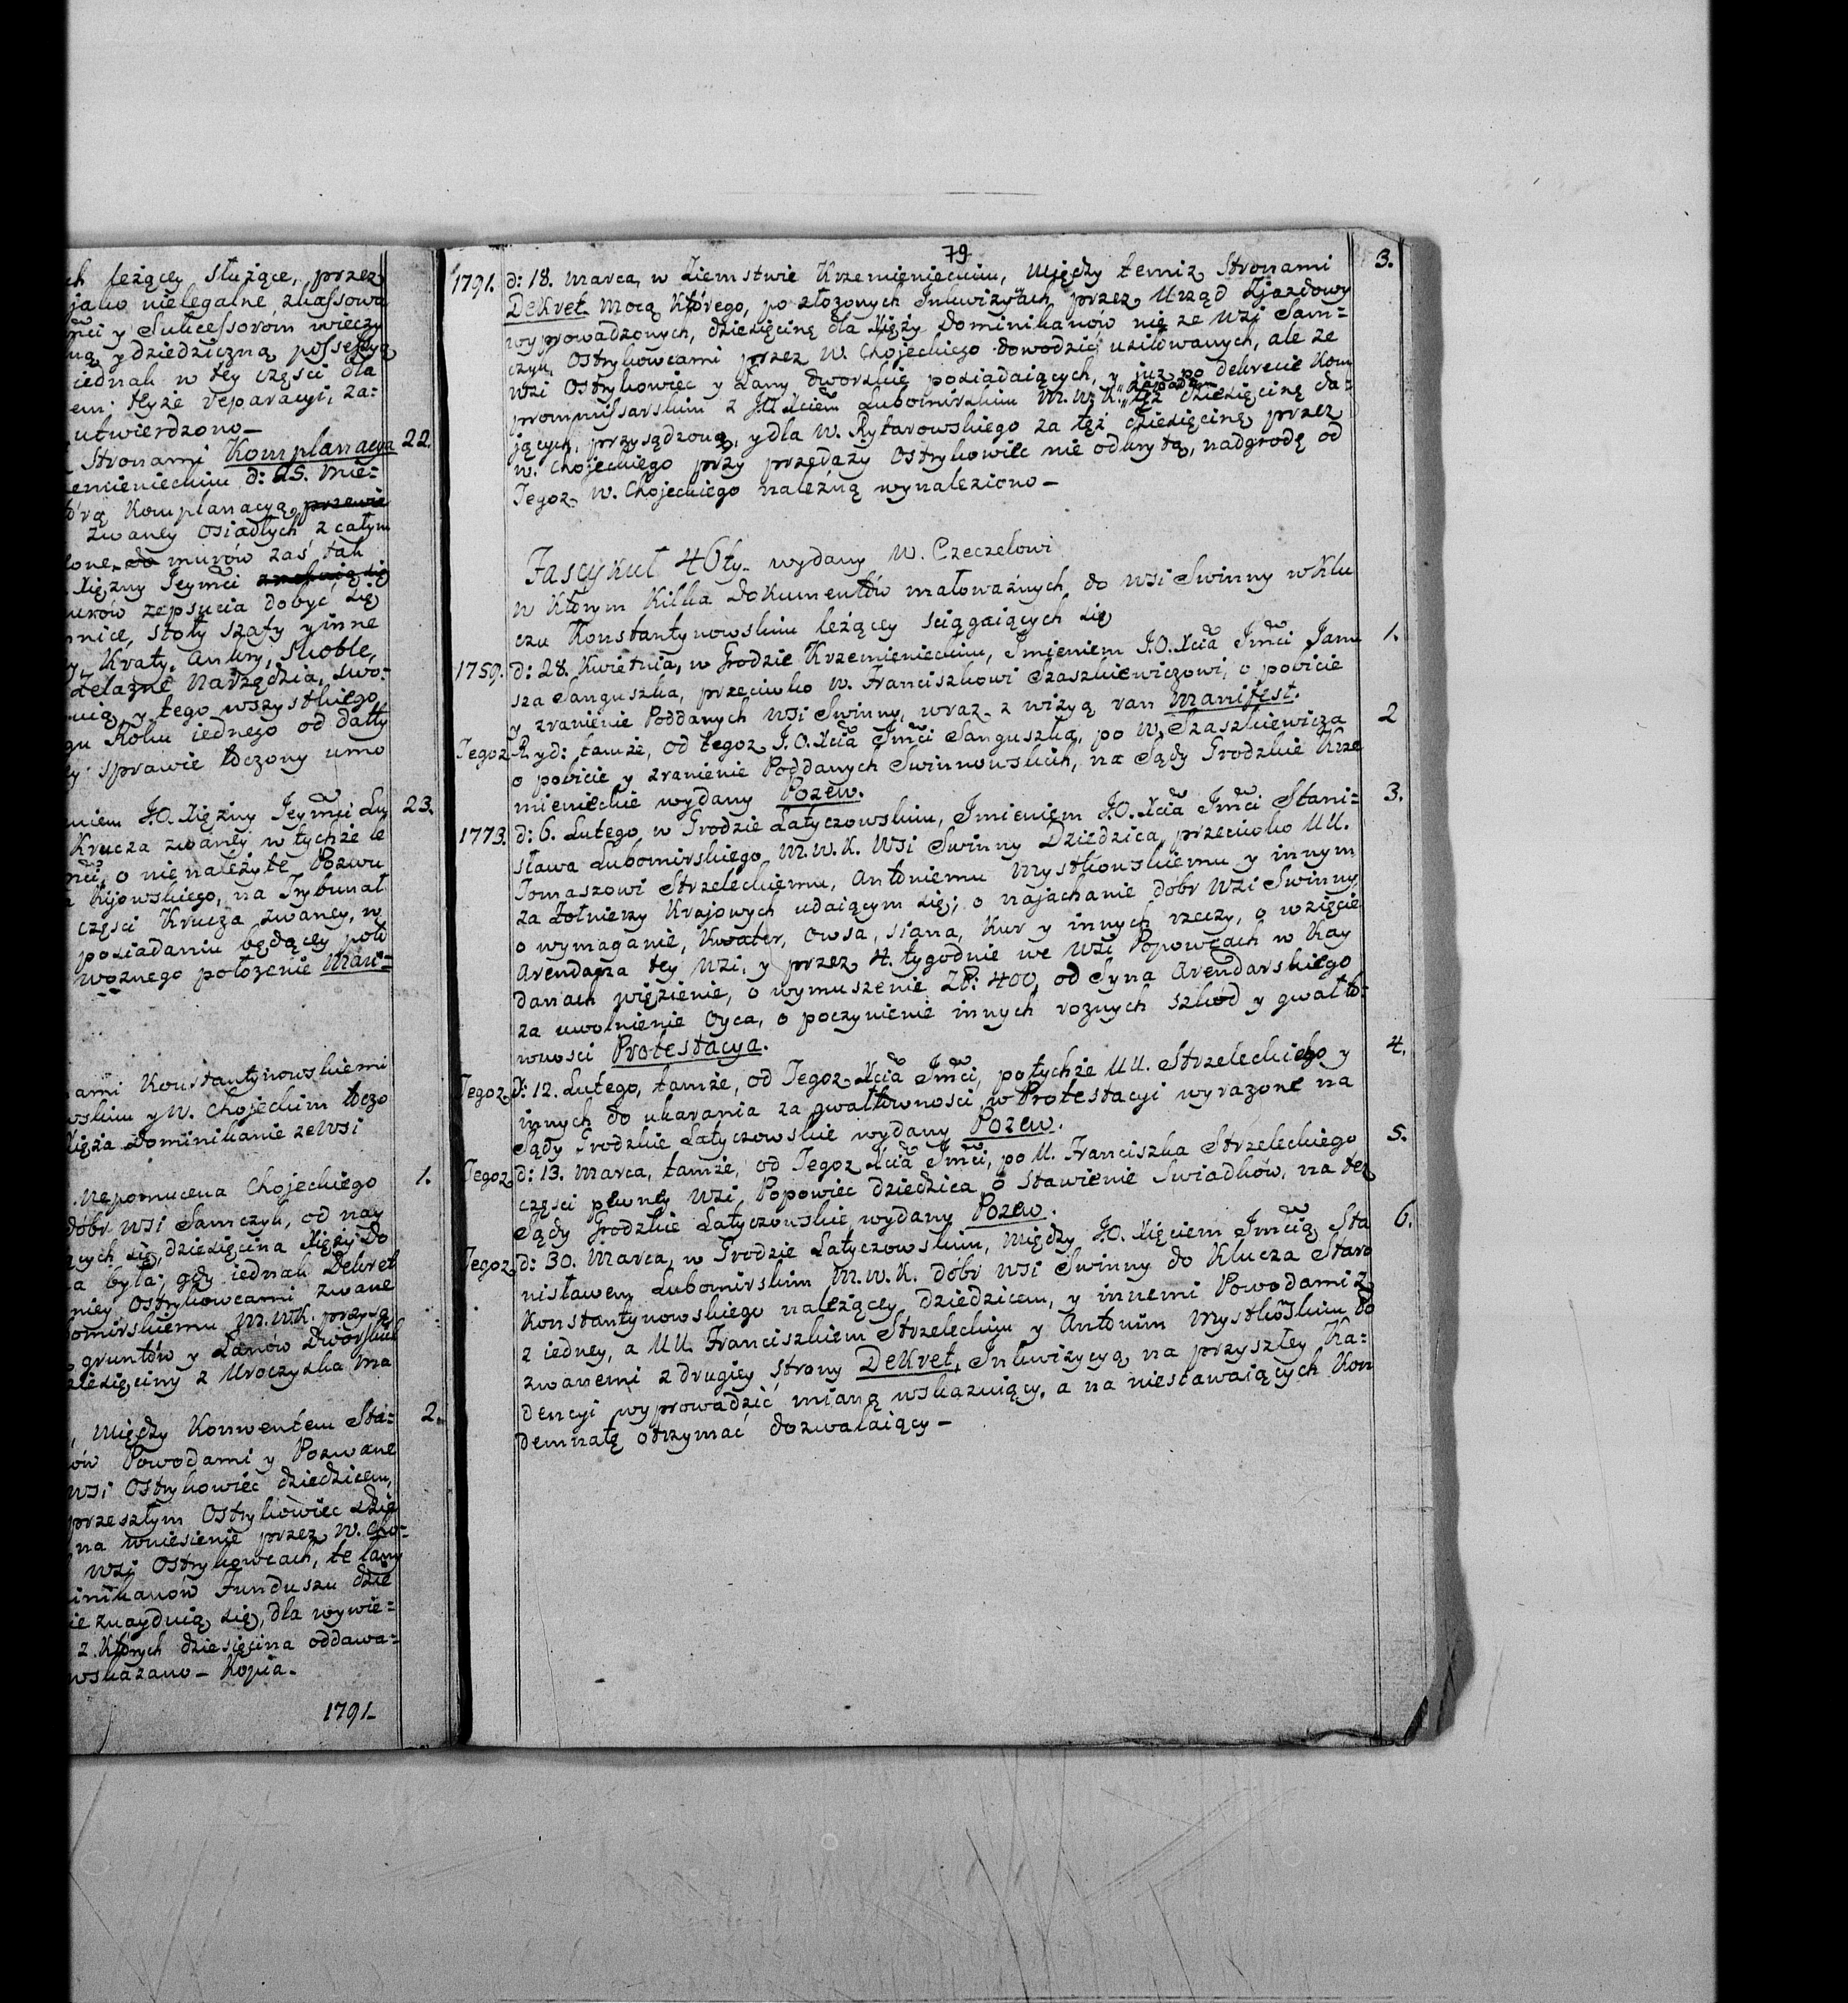 ch leżący służące, przez
jako nielegalne skassowa
Imci y Sukcessorów wieczy
ną y dziedziczną possessyą
iednak w tey części dla
em; teyże reparacyi, za-
utwierdzono —
Stronami Komplanacya 22.
emienieckim d: 25. Mie-
tórą Komplanacyą przewie
zwaney osiadłych z całym
lone, do murów zaś tak
Xiężny Jeymci
murów zepsucia dobyć się
nnice, stoły szafy y inne
Kraty, ankry, skoble,
żelazne narzędzia, swo-
y tego wszystkiego
gu Roku iednego od datty
ey sprawie tczony umo
niem J.O. Xiężny Jeymci Lu 23.
Krucza zwaney w tychże le
o nienależyte Pozwu
Kijowskiego, na Trybunał
części Krucza zwaney, w
posiadaniu będącey poło
woznego położenie Mani=
ami Konstantynowskiemi
wskim y W. Chojeckim tczo
Xięża Dominikanie ze wsi
Nepomucena Chojeckiego 1.
dóbr wsi Samczyk, od nay
cych się, dziesięcina Xięży Do
a była; gdy iednak Dekret
niey Ostrykowcami zwane
omirskiemu M.W.K. przysą
gruntów y Łanów Dworskich
ziesięciny z Uroczyska ma
, między Konwentem Sta= 2.
ów Powodami y Pozwane
wsi Ostrykowiec dziedzicem,
przeszłym Ostrykowiec dzie
na wniesienie przez W. Cho=
wsi Ostrykowcach, te łany
inikanów Funduszu dzie
ie znayduią się, dla wywie=
z których dziesięcina oddawa=
wskazano — Kopia.
1791
79
1791. d: 18. Marca, w Ziemstwie Krzemienieckim, między temiż Stronami 3.
Dekret. Mocą którego, po złożonych Inkwizycyach przez Urząd Zjazdowy
wyprowadzonych, dziesięcinę dla Xięży Dominikanów nie ze wsi Sam=
czyk, Ostrykowcami przez W. Chojeckiego dowodzić usiłowanych, ale ze
wsi Ostrykowiec y Łany dworskie posiadaiących, y już po dekrecie Kom
prommissarskim z JO Xciem Lubomirskim M.W.K. „zapadłym„ też dziesięcinę da=
jących, przysądzoną, y dla W. Rytarowskiego za też dziesięcinę przez
W. Chojeckiego przy przedaży Ostrykowiec nie odkrytą, nadgrodę od
Tegoż W. Chojeckiego należną wynaleziono —
Fascykuł 46ty. wydany W. Czeczelowi
w którym kilka Dokumentów małoważnych do wsi Swinny w Klu
czu Konstantynowskim leżącey sciągaiących się
1759. d: 28. Kwietnia, w Grodzie Krzemienieckim, Imieniem J.O. Xcia Imci Janu 1.
sza Sanguszka, przeciwko W. Franciszkowi Szaszkiewiczowi, o pobicie
y zranienie Poddanych wsi Swinny, wraz z wizyą ran Manifest.
Tegoż R. y d: tamże, od tegoż J.O. Xcia Imci Sanguszka, po W. Szaszkiewicza 2
o pobicie y zranienie Poddanych Swinnowskich, na Sądy Grodzkie Krze
mienieckie wydany Pozew.
1773. d: 6. Lutego, w Grodzie Latyczowskim, Imieniem J.O. Xcia Imci Stani= 3.
sława Lubomirskiego M.W.K. wsi Swinny Dziedzica, przeciwko UU.
Tomaszowi Strzeleckiemu, Antoniemu Mystkowskiemu y innym
za Żołnierzy Krajowych udaiącym się; o najachanie dóbr wsi Swinny
o wymaganie, Kwater, owsa, siana, kur y innych rzeczy, o wzięcie
Arendarza tey wsi, y przez 4. tygodnie we wsi Popowcach w Kay
danach więzienie, o wymuszenie Zł: 400, od Syna Arendarskiego
za uwolnienie Oyca, o poczynienie innych roznych szkod y gwałto=
wnosci Protestacya.
Tegoż d: 12. Lutego, tamże, od Tegoż Xcia Imci, po tychże UU. Strzeleckiego y 4.
innych do ukarania za gwałtowności w Protestacyi wyrażone na
Sądy Grodzkie Latyczowskie wydany Pozew.
Tegoż d: 13. Marca, tamże, od Tegoż Xcia Imci, po U. Franciszka Strzeleckiego 5.
części pewney wsi Popowiec dziedzica, o Stawienie Swiadków, na też
Sądy Grodzkie Latyczowskie wydany Pozew.
Tegoż d: 30. Marca, w Grodzie Latyczowskim, między J.O. Xięciem Imcią Sta 6.
nisławem Lubomirskim M.W.K. dóbr wsi Swinny do Klucza Staro
Konstantynowskiego należącey dziedzicem, y innemi Powodami z
z iedney, a UU. Franciszkiem Strzeleckim y Antonim Mystkowskim Po
zwanemi z drugiey strony Dekret, Inkwizycyą na przyszłey Ka=
dencyi wyprowadzić mianą wskazuiący, a na niestawaiących Kon
demnatę otrzymać dozwalaiący —